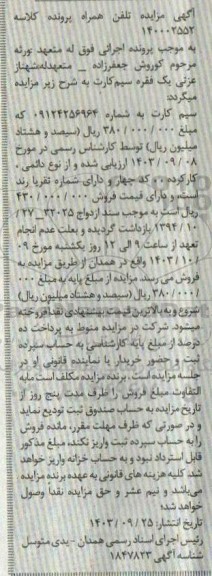 آگهی مزایده تلفن همراه پرونده کلاسه
۱۴۰۰۰۲۵۵۲
به موجب پرونده اجرائی فوق له متعهد :ورثه
مرحوم کوروش جعفرزاده _ متعهدله:شهناز
عزتی یک فقره سیم‌کارت به شرح زیر مزایده
میگردد:
سیم کارت به شماره ۰۹۱۲۴۲۵۶۹۶۴ که
مبلغ ۳۸۰/۰۰۰/۰۰۰ ریال (سیصد و هشتاد
میلیون ریال) توسط کارشناس رسمی در مورخ
۱۴۰۳/۰۹/۰۸ ارزیابی شده و از نوع دائمی .
کارکرده کد چهار و دارای شماره تقریبا رند
است، و دارای قیمت فروش ۴۳۰/۰۰۰/۰۰۰
ریال است به موجب سند ازدواج ۳۲۰۲۵_۲۷/
۱۳۹۴/۱۰ بازداشت گردیده و بعلت عدم انجام
تعهد از ساعت ۹ الی ۱۲ روز یکشنبه مورخ ۰۹
۱۴۰۳/۱۰/ واقع در همدان از طریق مزایده به
فروش می رسد. مزایده از مبلغ پایه به مبلغ ۰۰۰
/۳۸۰/۰۰۰ ریال (سیصد و هشتاد میلیون ریال)
شروع و به بالاترین قیمت پیشنهادی نقدا فروخته
میشود. شرکت در مزایده منوط به پرداخت ده
درصد از مبلغ پایه کارشناسی به حساب سپرده
ثبت و حضور خریدار یا نماینده قانونی او در
جلسه مزایده است . برنده مزایده مکلف است مابه
التفاوت مبلغ فروش را ظرف مدت پنج روز از
تاریخ مزایده به حساب صندوق ثبت تودیع نماید
و در صورتی که ظرف مهلت مقرر، مانده فروش
را به حساب سپرده ثبت واریز نکند، مبلغ مذکور
قابل استرداد نبود و به حساب خزانه واریز خواهد
شد. کلیه هزینه های قانونی به عهده برنده مزایده
می‌باشد و نیم عشر و حق مزایده نقدا وصول
خواهد شد؛
تاریخ انتشار: ۱۴۰۳/۰۹/۲۵
رئیس اجرای اسناد رسمی همدان – یدی متوسل
شناسه آگهی ۱۸۴۷۸۲۳